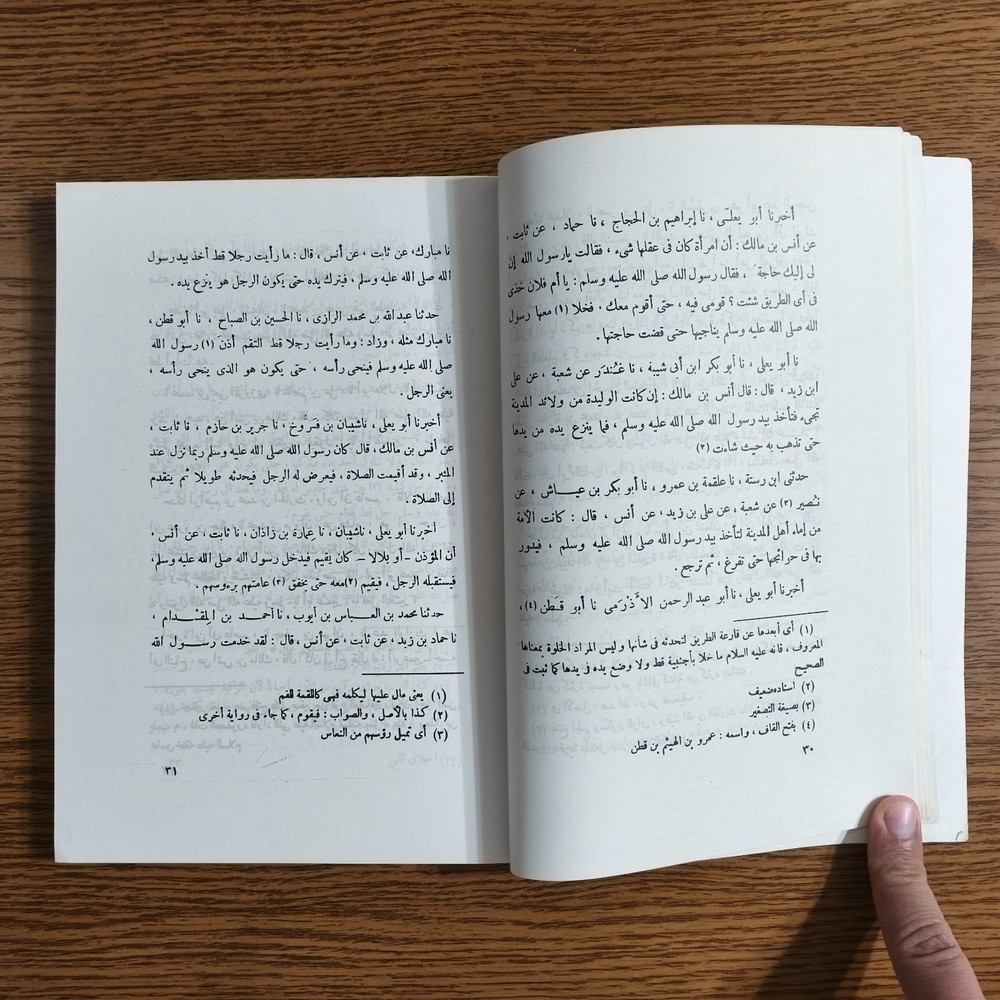 أخبرنا أبو يعلَى ، نا إبراهيم بن الحجاج ، نا حماد ، عن ثابت ،
عن أنس بن مالك : أن امرأة كان فى عقلها شىء ، فقالت يارسول الله إن
لى إليك حاجة ، فقال رسول الله صلى الله عليه وسلم : يا أم فلان خذى
فى أى الطريق شئت ؟ قومى فيه ، حتى أقوم معك ، فخلا (١) معها رسول
الله صلى الله عليه وسلم يناجيها حتى قضت حاجتها .
نا أبو يعلى ، نا أبو بكر ابن أبى شيبة ، نا غُنْدَر عن شعبة ، عن على
ابن زيد ، قال : قال أنس بن مالك : إن كانت الوليدة من ولائد المدينة
تجىء فتأخذ بيد رسول الله صلى الله عليه وسلم ، فما ينزع يده من يدها
حتى تذهب به حيث شاءت (٢)
حدثنى ابن رستة ، نا علقمة بن عمرو ، نا أبو بكر بن عيـــاش ، عن
نُصير (٣) عن شعبة ، عن على بن زيد ، عن أنس ، قال : كانت الأمة
من إماء أهل المدينة لتأخذ بيد رسول الله صلى الله عليه وسلم ، فيدور
بها فى حوائجها حتى تفرغ ، ثم ترجع .
أخبرنا أبو يعلى ، نا أبو عبد الرحمن الأذْرَمى نا أبو قَطَن (٤) ،
(١) أى أبعدها عن قارعة الطريق لتحدثه فى شأنها وليس المراد الخلوة بمعناها
المعروف ، فانه عليه السلام ما خلا بأجنبية قط ولا وضع يده فى يدها كما ثبت فى
الصحيح
(٢) اسناده ضعيف
(٣) بصيغة التصغير
(٤) بفتح القاف ، واسمه : عمرو بن الهيثم بن قطن
٣٠
نا مبارك، عن ثابت ، عن أنس ، قال : ما رأيت رجلا قط أخذ بيد رسول
الله صلى الله عليه وسلم ، فيترك يده حتى يكون الرجل هو ينزع يده .
حدثنا عبد الله بن محمد الرازى ، نا الحسين بن الصباح ، نا أبو قطن ،
نا مبارك مثله ، وزاد : وما رأيت رجلا قط التقم أذن (١) رسول الله
صلى الله عليه وسلم فينحى رأسه ، حتى يكون هو الذى ينحى رأسه ،
يعنى الرجل .
أخبرنا أبو يعلى ، نا شيبان بن فَرّوخ ، نا جرير بن حازم ، فا ثابت ،
عن أنس بن مالك ، قال كان رسول الله صلى الله عليه وسلم ربما نزل عند
المنبر ، وقد أقيمت الصلاة ، فيعرض له الرجل فيحدثه طويلا ثم يتقدم
إلى الصلاة .
أخبرنا أبو يعلى ، نا شيبان ، نا عمارة بن زاذان ، نا ثابت ، عن أنس ،
أن المؤذن – أو بلالا – كان يقيم فيدخل رسول الله صلى الله عليه وسلم،
فيستقبله الرجل ، فيقيم (٢) معه حتى يخفق (٣) عامتهم برءوسهم .
حدثنا محمد بن العباس بن أيوب ، نا أحمـد بن المقـدام ،
نا حماد بن زيد ، عن ثابت ، عن أنس ، قال : لقد خدمت رســول الله
(١) يعنى مال عليها ليكلمه فهى كاللقمة للفم
(٢) كذا بالأصل ، والصواب : فيقوم ، كما جاء فى رواية أخرى
(٣) أى تميل رؤسهم من النعاس
٣١